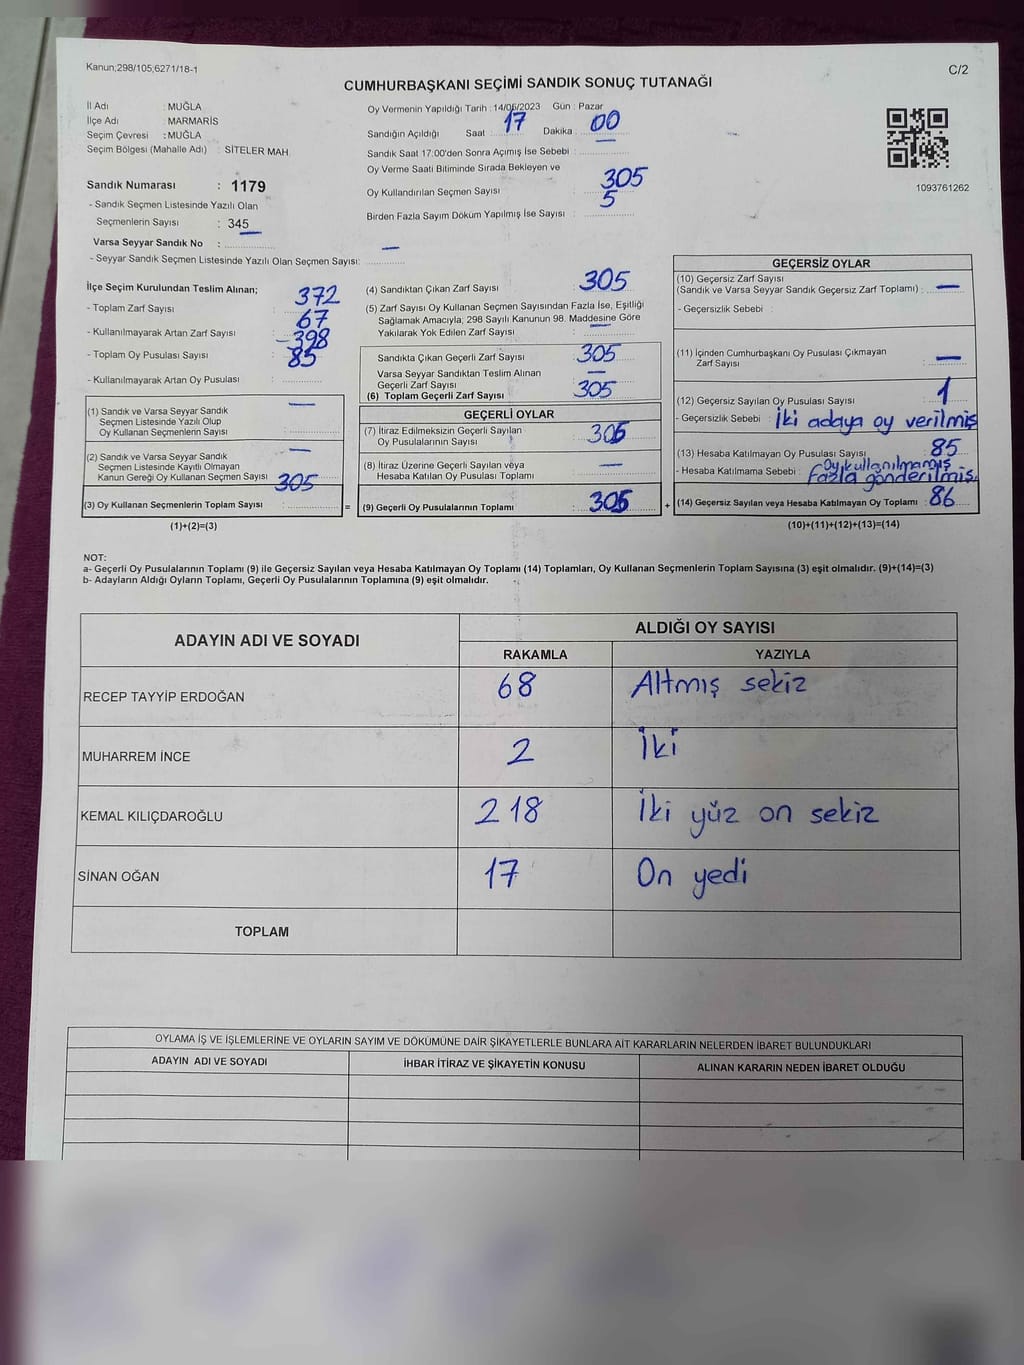 Kanun;298/105;6271/18-1
C/2
CUMHURBAŞKANI SEÇİMİ SANDIK SONUÇ TUTANAĞI
İl Adı : MUĞLA
İlçe Adı : MARMARİS
Seçim Çevresi : MUĞLA
Seçim Bölgesi (Mahalle Adı) : SİTELER MAH.
Sandık Numarası : 1179
- Sandık Seçmen Listesinde Yazılı Olan
Seçmenlerin Sayısı : 345
Varsa Seyyar Sandık No :
- Seyyar Sandık Seçmen Listesinde Yazılı Olan Seçmen Sayısı: —
Oy Vermenin Yapıldığı Tarih : 14/05/2023 Gün : Pazar
Sandığın Açıldığı Saat : 17 Dakika : 00
Sandık Saat 17:00'den Sonra Açımış İse Sebebi : —
Oy Verme Saati Bitiminde Sırada Bekleyen ve
Oy Kullandırılan Seçmen Sayısı : 305
Birden Fazla Sayım Döküm Yapılmış İse Sayısı : 5
1093761262
İlçe Seçim Kurulundan Teslim Alınan;
- Toplam Zarf Sayısı : 372
- Kullanılmayarak Artan Zarf Sayısı : 67
- Toplam Oy Pusulası Sayısı : 398
- Kullanılmayarak Artan Oy Pusulası : 85
(1) Sandık ve Varsa Seyyar Sandık —
Seçmen Listesinde Yazılı Olup
Oy Kullanan Seçmenlerin Sayısı
(2) Sandık ve Varsa Seyyar Sandık —
Seçmen Listesinde Kayıtlı Olmayan
Kanun Gereği Oy Kullanan Seçmen Sayısı
(3) Oy Kullanan Seçmenlerin Toplam Sayısı : 305
=
(1)+(2)=(3)
(4) Sandıktan Çıkan Zarf Sayısı : 305
(5) Zarf Sayısı Oy Kullanan Seçmen Sayısından Fazla İse, Eşitliği
Sağlamak Amacıyla; 298 Sayılı Kanunun 98. Maddesine Göre
Yakılarak Yok Edilen Zarf Sayısı : —
Sandıkta Çıkan Geçerli Zarf Sayısı : 305
Varsa Seyyar Sandıktan Teslim Alınan
Geçerli Zarf Sayısı : —
(6) Toplam Geçerli Zarf Sayısı : 305
GEÇERLİ OYLAR
(7) İtiraz Edilmeksizin Geçerli Sayılan
Oy Pusulalarının Sayısı : 305
(8) İtiraz Üzerine Geçerli Sayılan veya
Hesaba Katılan Oy Pusulası Toplamı : —
(9) Geçerli Oy Pusulalarının Toplamı : 305
+
GEÇERSİZ OYLAR
(10) Geçersiz Zarf Sayısı
(Sandık ve Varsa Seyyar Sandık Geçersiz Zarf Toplamı) : —
- Geçersizlik Sebebi :
(11) İçinden Cumhurbaşkanı Oy Pusulası Çıkmayan
Zarf Sayısı : —
(12) Geçersiz Sayılan Oy Pusulası Sayısı : 1
- Geçersizlik Sebebi : İki adaya oy verilmiş
(13) Hesaba Katılmayan Oy Pusulası Sayısı : 85
- Hesaba Katılmama Sebebi : Oy kullanılmamış
Fazla gönderilmiş.
(14) Geçersiz Sayılan veya Hesaba Katılmayan Oy Toplamı : 86
(10)+(11)+(12)+(13)=(14)
NOT:
a- Geçerli Oy Pusulalarının Toplamı (9) ile Geçersiz Sayılan veya Hesaba Katılmayan Oy Toplamı (14) Toplamları, Oy Kullanan Seçmenlerin Toplam Sayısına (3) eşit olmalıdır. (9)+(14)=(3)
b- Adayların Aldığı Oyların Toplamı, Geçerli Oy Pusulalarının Toplamına (9) eşit olmalıdır.
ADAYIN ADI VE SOYADI ALDIĞI OY SAYISI
RAKAMLA YAZIYLA
RECEP TAYYİP ERDOĞAN 68 Altmış sekiz
MUHARREM İNCE 2 İki
KEMAL KILIÇDAROĞLU 218 İki yüz on sekiz
SİNAN OĞAN 17 On yedi
TOPLAM
OYLAMA İŞ VE İŞLEMLERİNE VE OYLARIN SAYIM VE DÖKÜMÜNE DAİR ŞİKAYETLERLE BUNLARA AİT KARARLARIN NELERDEN İBARET BULUNDUKLARI
ADAYIN ADI VE SOYADI İHBAR İTİRAZ VE ŞİKAYETİN KONUSU ALINAN KARARIN NEDEN İBARET OLDUĞU